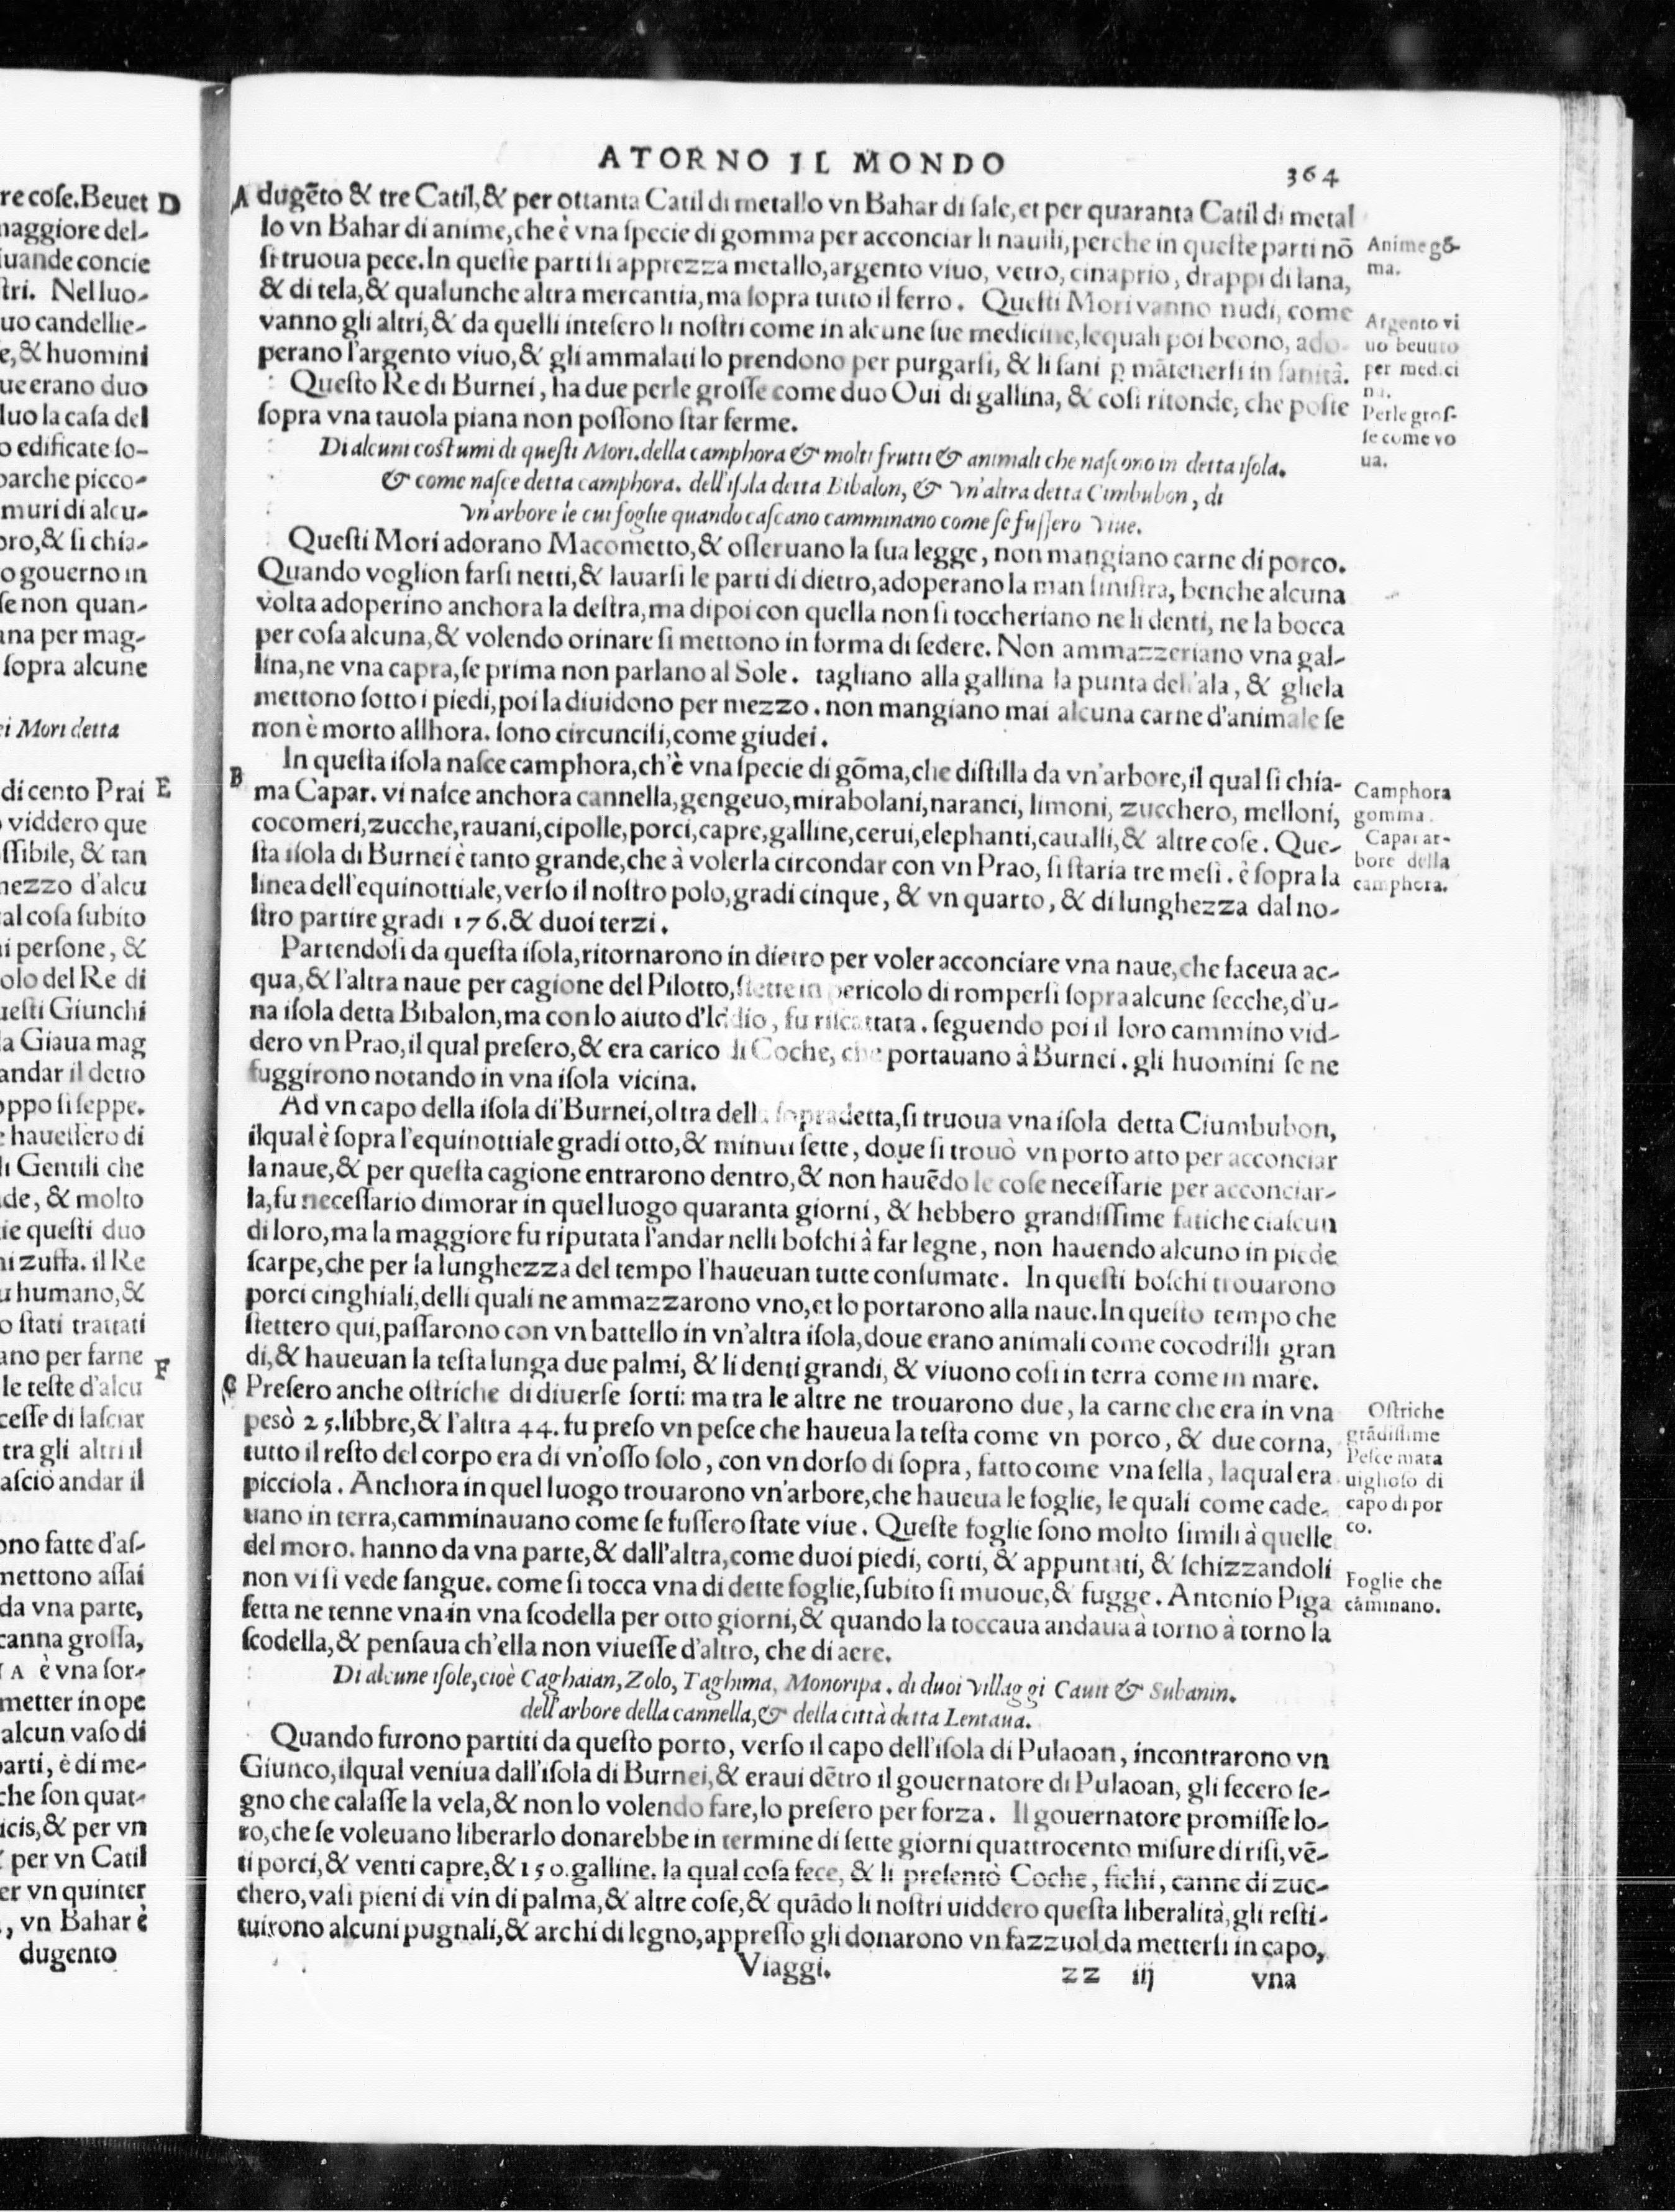 re cose. Beuet D
maggiore del-
uande concie
stri. Nel luo-
uo candellie-
e, & huomini
ue erano duo
luo la casa del
o edificate so-
barche picco-
muri di alcu-
oro, & si chia-
o gouerno in
se non quan-
ana per mag-
sopra alcune
ei Mori detta
di cento Prai E
viddero que
ssibile, & tan
mezzo d'alcu
tal cosa subito
ni persone, &
olo del Re di
uesti Giunchi
la Giaua mag
andar il detto
oppo si seppe.
e hauessero di
li Gentili che
de, & molto
ie questi duo
ni zuffa. il Re
u humano, &
o stati trattati
ano per farne F
le teste d'alcu
cesse di lasciar
tra gli altri il
asciò andar il
ono fatte d'as-
mettono assai
da vna parte,
canna grossa,
A è vna sor-
metter in ope
alcun vaso di
parti, è di me-
che son quat-
icis, & per vn
per vn Catil
er vn quinter
, vn Bahar è
dugento
ATORNO IL MONDO 364
A dugēto & tre Catil, & per ottanta Catil di metallo vn Bahar di sale, et per quaranta Catil di metal
lo vn Bahar di anime, che è vna specie di gomma per acconciar li nauili, perche in queste parti nō
si truoua pece. In queste parti si apprezza metallo, argento viuo, vetro, cinaprio, drappi di lana,
& di tela, & qualunche altra mercantia, ma sopra tutto il ferro. Questi Mori vanno nudi, come
vanno gli altri, & da quelli intesero li nostri come in alcune sue medicine, lequali poi beono, ado-
perano l'argento viuo, & gli ammalati lo prendono per purgarsi, & li sani ꝑ mātenersi in sanità.
Questo Re di Burnei, ha due perle grosse come duo Oui di gallina, & cosi ritonde, che poste
sopra vna tauola piana non possono star ferme.
Di alcuni costumi di questi Mori. della camphora & molti frutti & animali che nascono in detta isola.
& come nasce detta camphora. dell'isola detta Bibalon, & vn'altra detta Cimbubon, di
vn'arbore le cui foglie quando cascano camminano come se fussero viue.
Questi Mori adorano Macometto, & osseruano la sua legge, non mangiano carne di porco.
Quando voglion farsi netti, & lauarsi le parti di dietro, adoperano la man sinistra, benche alcuna
volta adoperino anchora la destra, ma dipoi con quella non si toccheriano ne li denti, ne la bocca
per cosa alcuna, & volendo orinare si mettono in forma di sedere. Non ammazzeriano vna gal-
lina, ne vna capra, se prima non parlano al Sole. tagliano alla gallina la punta dell'ala, & gliela
mettono sotto i piedi, poi la diuidono per mezzo. non mangiano mai alcuna carne d'animale se
non è morto allhora. sono circuncisi, come giudei.
B In questa isola nasce camphora, ch'è vna specie di gōma, che distilla da vn'arbore, il qual si chia-
ma Capar. vi nasce anchora cannella, gengeuo, mirabolani, naranci, limoni, zucchero, melloni,
cocomeri, zucche, rauani, cipolle, porci, capre, galline, cerui, elephanti, caualli, & altre cose. Que-
sta isola di Burnei è tanto grande, che à volerla circondar con vn Prao, si staria tre mesi. è sopra la
linea dell'equinottiale, verso il nostro polo, gradi cinque, & vn quarto, & di lunghezza dal no-
stro partire gradi 176. & duoi terzi.
Partendosi da questa isola, ritornarono in dietro per voler acconciare vna naue, che faceua ac-
qua, & l'altra naue per cagione del Pilotto, stette in pericolo di rompersi sopra alcune secche, d'u-
na isola detta Bibalon, ma con lo aiuto d'Iddio, fu riscattata. seguendo poi il loro cammino vid-
dero vn Prao, il qual presero, & era carico di Coche, che portauano à Burnei. gli huomini se ne
fuggirono notando in vna isola vicina.
Ad vn capo della isola di Burnei, oltra della sopradetta, si truoua vna isola detta Ciumbubon,
ilqual è sopra l'equinottiale gradi otto, & minuti sette, doue si trouò vn porto atto per acconciar
la naue, & per questa cagione entrarono dentro, & non hauēdo le cose necessarie per acconciar-
la, fu necessario dimorar in quel luogo quaranta giorni, & hebbero grandissime fatiche ciascun
di loro, ma la maggiore fu riputata l'andar nelli boschi à far legne, non hauendo alcuno in piede
scarpe, che per la lunghezza del tempo l'haueuan tutte consumate. In questi boschi trouarono
porci cinghiali, delli quali ne ammazzarono vno, et lo portarono alla naue. In questo tempo che
stettero qui, passarono con vn battello in vn'altra isola, doue erano animali come cocodrilli gran
di, & haueuan la testa lunga due palmi, & li denti grandi, & viuono cosi in terra come in mare.
C Presero anche ostriche di diuerse sorti: ma tra le altre ne trouarono due, la carne che era in vna
pesò 25. libbre, & l'altra 44. fu preso vn pesce che haueua la testa come vn porco, & due corna,
tutto il resto del corpo era di vn'osso solo, con vn dorso di sopra, fatto come vna sella, laqual era
picciola. Anchora in quel luogo trouarono vn'arbore, che haueua le foglie, le quali come cade-
uano in terra, camminauano come se fussero state viue. Queste foglie sono molto simili à quelle
del moro. hanno da vna parte, & dall'altra, come duoi piedi, corti, & appuntati, & schizzandoli
non vi si vede sangue. come si tocca vna di dette foglie, subito si muoue, & fugge. Antonio Piga
fetta ne tenne vna in vna scodella per otto giorni, & quando la toccaua andaua à torno à torno la
scodella, & pensaua ch'ella non viuesse d'altro, che di aere.
Di alcune isole, cioè Caghaian, Zolo, Taghima, Monoripa. di duoi villaggi Cauit & Subanin.
dell'arbore della cannella, & della città detta Lentaua.
Quando furono partiti da questo porto, verso il capo dell'isola di Pulaoan, incontrarono vn
Giunco, ilqual veniua dall'isola di Burnei, & eraui dētro il gouernatore di Pulaoan, gli fecero se-
gno che calasse la vela, & non lo volendo fare, lo presero per forza. Il gouernatore promisse lo-
ro, che se voleuano liberarlo donarebbe in termine di sette giorni quattrocento misure di risi, vē-
ti porci, & venti capre, & 150. galline. la qual cosa fece, & li presentò Coche, fichi, canne di zuc-
chero, vasi pieni di vin di palma, & altre cose, & quādo li nostri uiddero questa liberalità, gli resti-
tuirono alcuni pugnali, & archi di legno, appresso gli donarono vn fazzuol da mettersi in capo,
Viaggi. zz iij vna
Anime gō-
ma.
Argento vi
uo beuuto
per medici
na.
Perle gros-
se come vo
ua.
Camphora
gomma.
Capar ar-
bore della
camphora.
Ostriche
grādissime
Pesce mara
uiglioso di
capo di por
co.
Foglie che
cāminano.